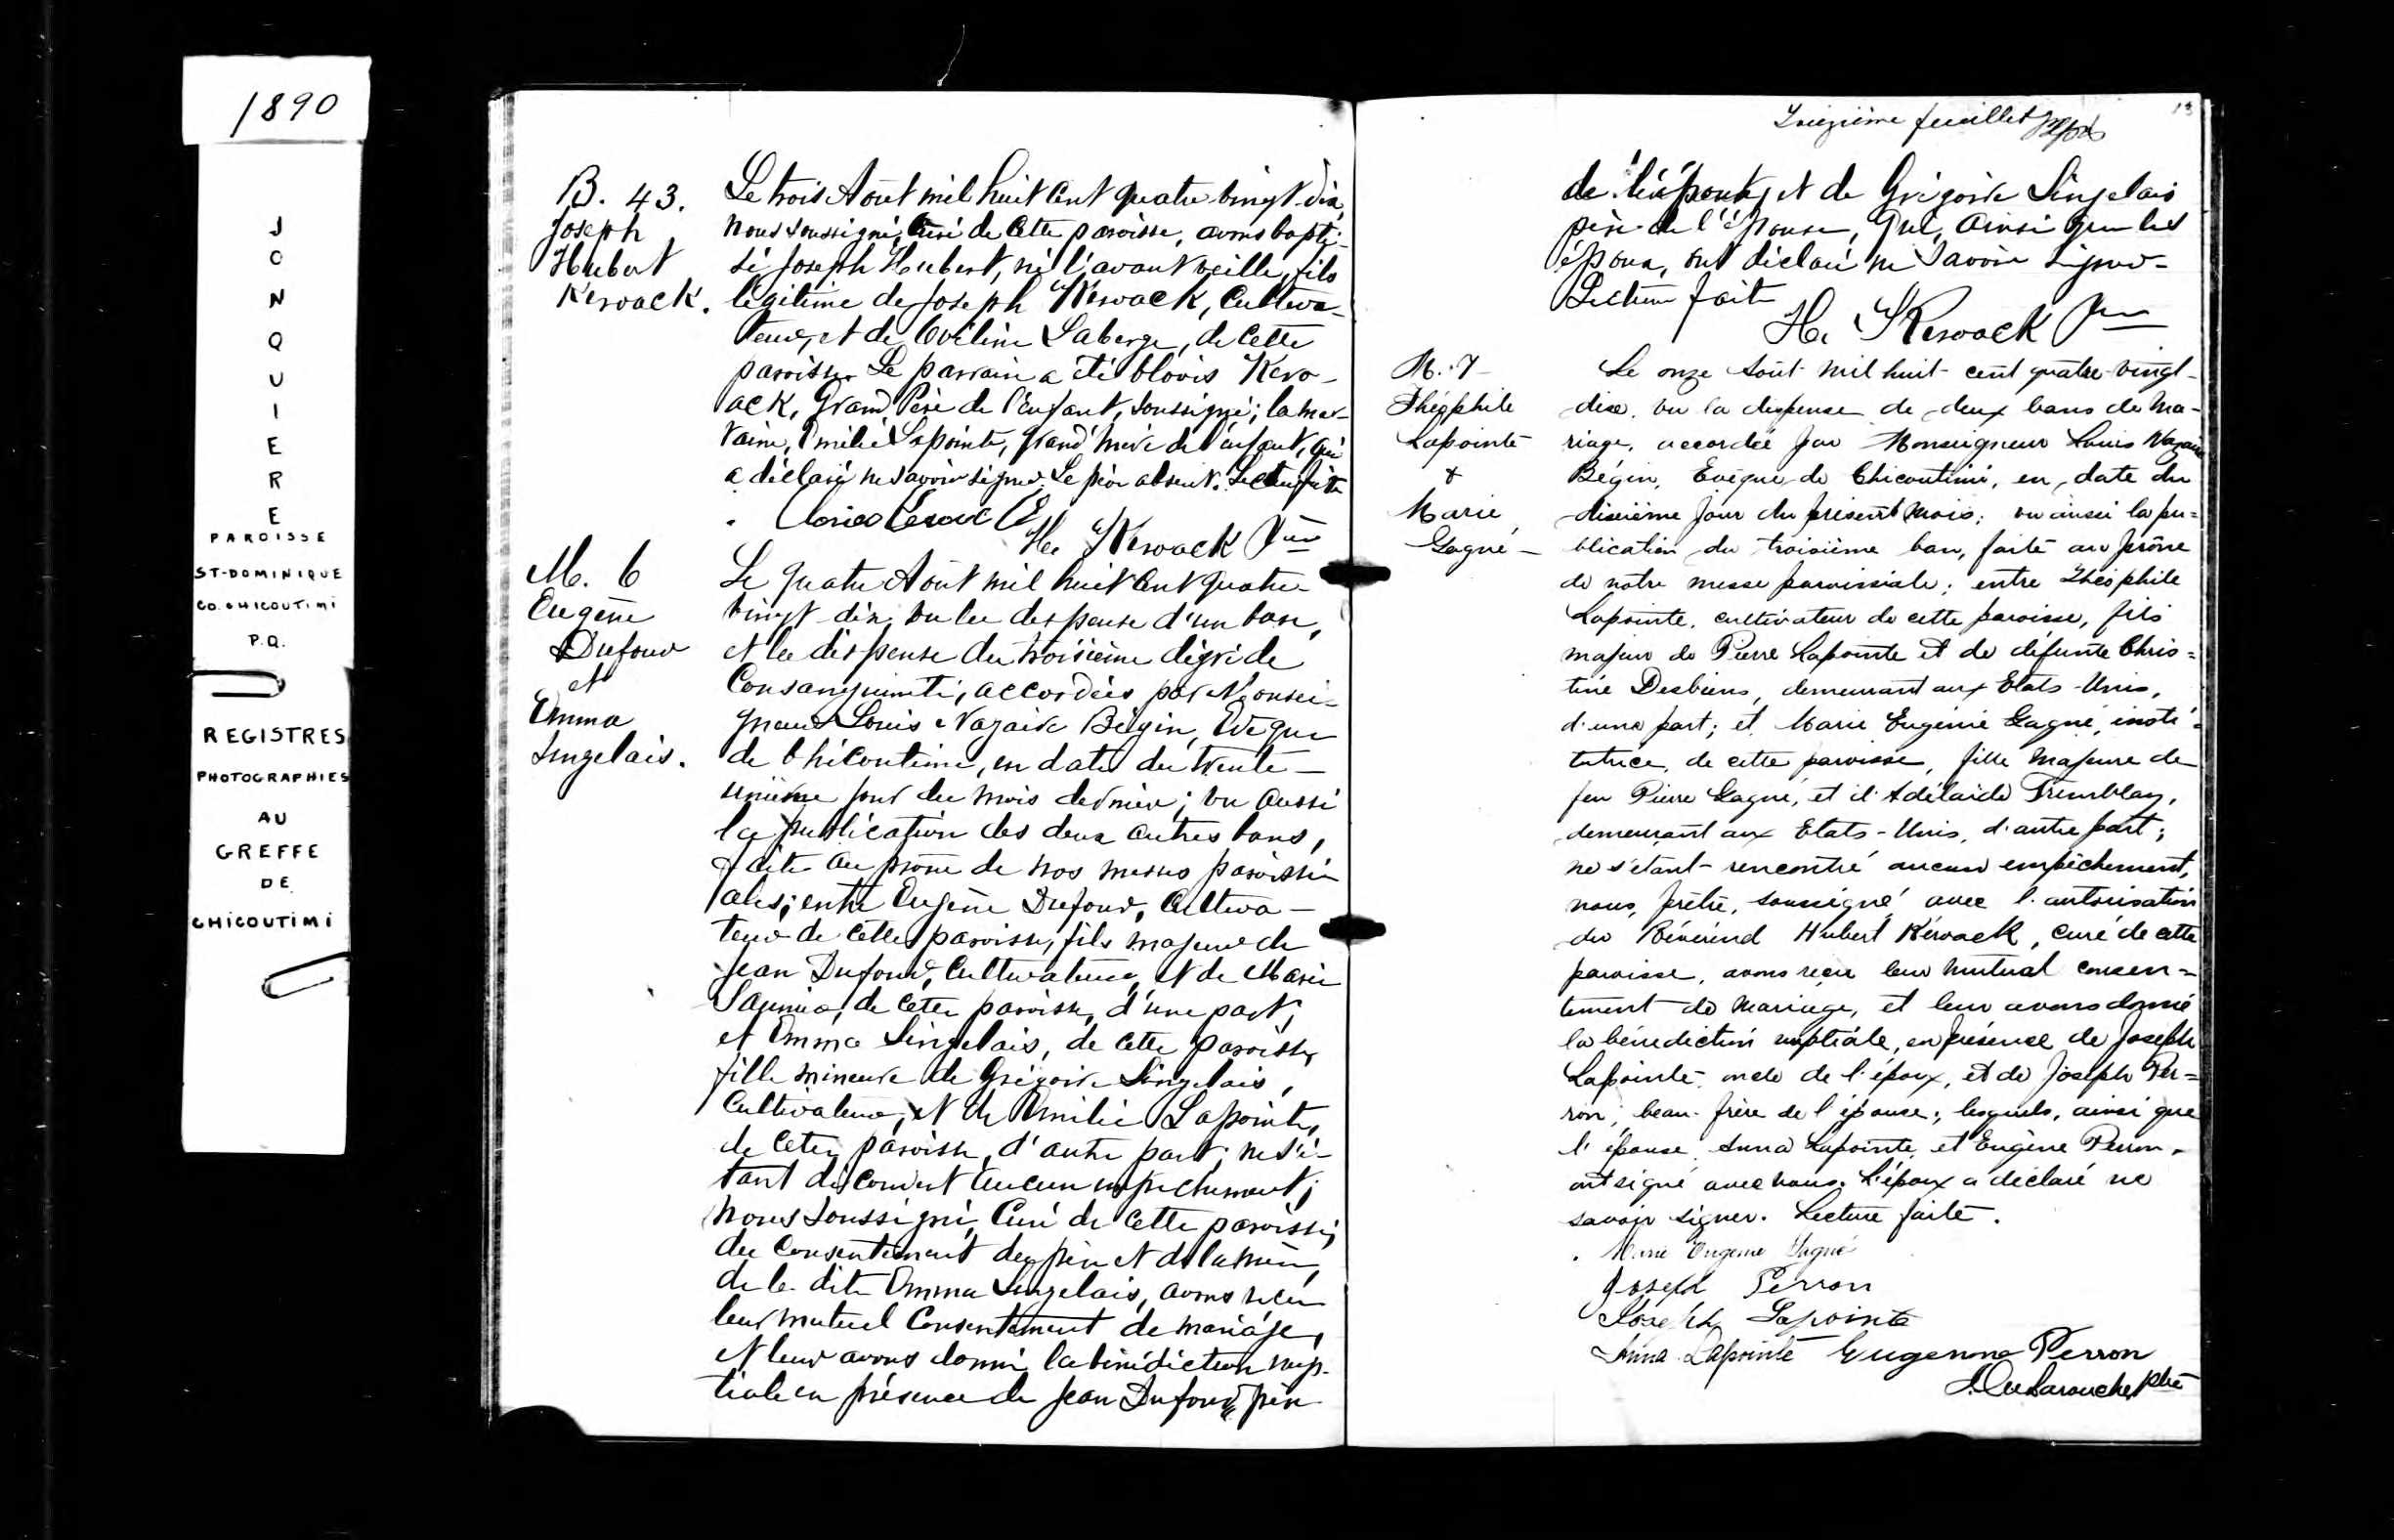 1890
JONQUIERE
PAROISSE
ST-DOMINIQUE
CO. CHICOUTIMI
P.Q.
REGISTRES
PHOTOGRAPHIES
AU
GREFFE
DE
CHICOUTIMI
B. 43.
Joseph
Hubert
Kerouack.
Le trois Août mil huit cent quatre-vingt-dix,
nous soussigné, Curé de cette paroisse, avons bapti-
sé Joseph Hubert, né l'avant veille, fils
légitime de Joseph Kerouack, Cultiva-
teur, et de Eveline Laberge, de cette
paroisse. Le parrain a été Clovis Kero-
ack, Grand Père de l'Enfant, soussigné; la mar-
raine, Emilie Lapointe, grand'mère de l'enfant, qui
a déclaré ne savoir signer. Le père absent. Lecture faite
H. Kerouack Ptre
M. 6
Eugène
Dufour
et
Emma
Singelais.
Le quatre Août mil huit cent quatre-
vingt-dix, vu la dispense d'un ban,
et la dispense du troisième dégré de
Consanguinité, accordées par Monsei-
gneur Louis Nazaire Bégin, Evêque
de Chicoutimi, en date du trente-
unième jour du mois dernier; vu aussi
la publication des deux autres bans,
faite au prône de nos messes paroissi-
ales; entre Eugène Dufour, Cultiva-
teur de cette paroisse, fils majeur de
Jean Dufour, Cultivateur, et de Marie
de cette paroisse, d'une part;
et Emma Singelais, de cette paroisse,
fille mineure de Grégoire Singelais,
Cultivateur, et de Emilie Lapointe,
de cette paroisse, d'autre part; ne s'é-
tant découvert aucun empêchement;
Nous soussigné, Curé de cette paroisse,
du consentement du père et de la mère,
de la dite Emma Singelais, avons reçu
leur mutuel Consentement de mariage,
et leur avons donné la bénédiction nup-
tiale en présence de Jean Dufour, père
Treizième feuillet
13
de l'époux, et de Grégoire Singelais
père de l'épouse, qui, ainsi que les
époux, ont déclaré ne savoir signer-
Lecture faite
H. Kerouack Ptre
M. 7
Théophile
Lapointe
&
Marie
Gagné
Le onze Août mil huit-cent quatre-vingt-
dix, vu la dispense de deux bans de ma-
riage, accordée par Monseigneur Louis Nazaire
Bégin, Evêque de Chicoutimi, en date du
dixième jour du présent mois; vu aussi la pu=
blication du troisième ban, faite au prône
de notre messe paroissiale; entre Théophile
Lapointe, cultivateur de cette paroisse, fils
majeur de Pierre Lapointe et de défunte Chris=
tine Desbiens, demeurant aux Etats-Unis,
d'une part; et Marie Eugénie Gagné, insti=
tutrice, de cette paroisse, fille majeure de
feu Pierre Gagné, et d'Adélaïde Tremblay,
demeurant aux Etats-Unis, d'autre part;
ne s'étant rencontré aucun empêchement,
nous, prêtre, soussigné avec l'autorisation
du Révérend Hubert Kérouack, curé de cette
paroisse, avons reçu leur mutuel consen=
tement de mariage, et leur avons donné
la bénédiction nuptiale, en présence de Joseph
Lapointe oncle de l'époux, et de Joseph Per=
ron, beau-frère de l'épouse; lesquels, ainsi que
l'épouse, Anna Lapointe, et Eugène Perron,
ont signé avec nous. L'époux a déclaré ne
savoir signer. Lecture faite.
Marie Eugenie Gagné
Joseph Perron
Joseph Lapointe
Anna Lapointe Eugenne Perron
Larouche Ptre